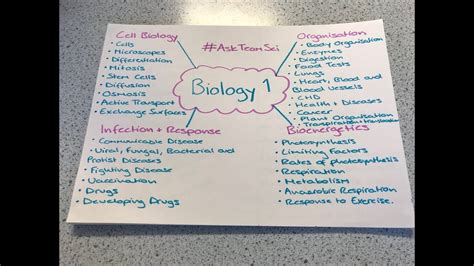 Cell Biology
• Cells
• Microscopes
• Differentiation
• Mitosis
• Stem Cells
• Diffusion
• Osmosis
• Active Transport
• Exchange Surfaces
#AskTeamSci
Biology 1
Organisation
• Body Organisation
• Enzymes
• Digestion
• Food Tests
• Lungs
• Heart, Blood and
Blood Vessels
• CHD
• Health + Diseases
• Cancer
• Plant Organisation
• Transpiration + Translocation
Infection + Response
• Communicable Disease
• Viral, Fungal, Bacterial and
Protist Diseases
• Fighting Disease
• Vaccination
• Drugs
• Developing Drugs
Bioenergetics
• Photosynthesis
• Limiting Factors
• Rates of photosynthesis
• Respiration
• Metabolism
• Anaerobic Respiration
• Response to Exercise.